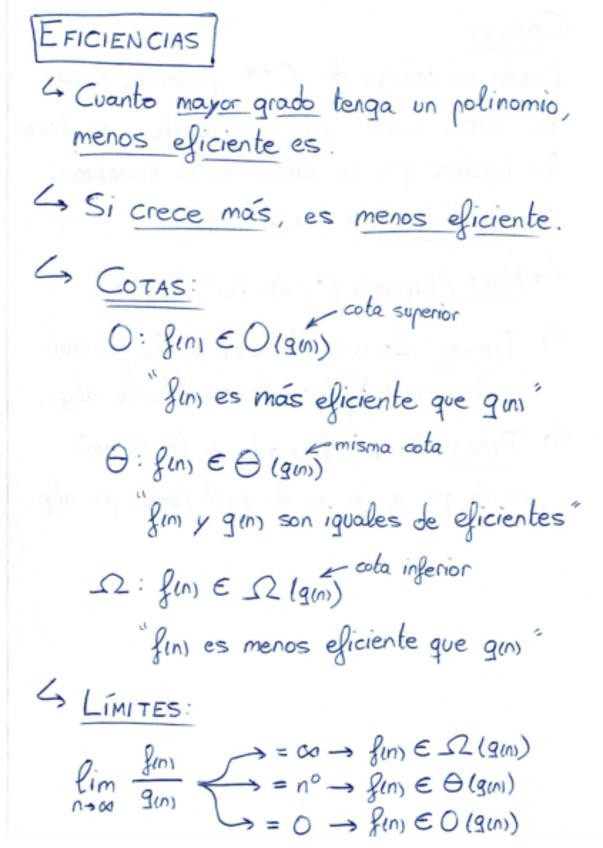 EFICIENCIAS
↳ Cuanto mayor grado tenga un polinomio,
menos eficiente es.
↳ Si crece más, es menos eficiente.
↳ COTAS:
O: f(n) ∈ O(g(n)) ← cota superior
"f(n) es más eficiente que g(n)"
Θ: f(n) ∈ Θ(g(n)) ← misma cota
"f(n) y g(n) son iguales de eficientes"
Ω: f(n) ∈ Ω(g(n)) ← cota inferior
"f(n) es menos eficiente que g(n)"
↳ LÍMITES:
lim n→∞ f(n)/g(n)
= ∞ → f(n) ∈ Ω(g(n))
= nº → f(n) ∈ Θ(g(n))
= 0 → f(n) ∈ O(g(n))